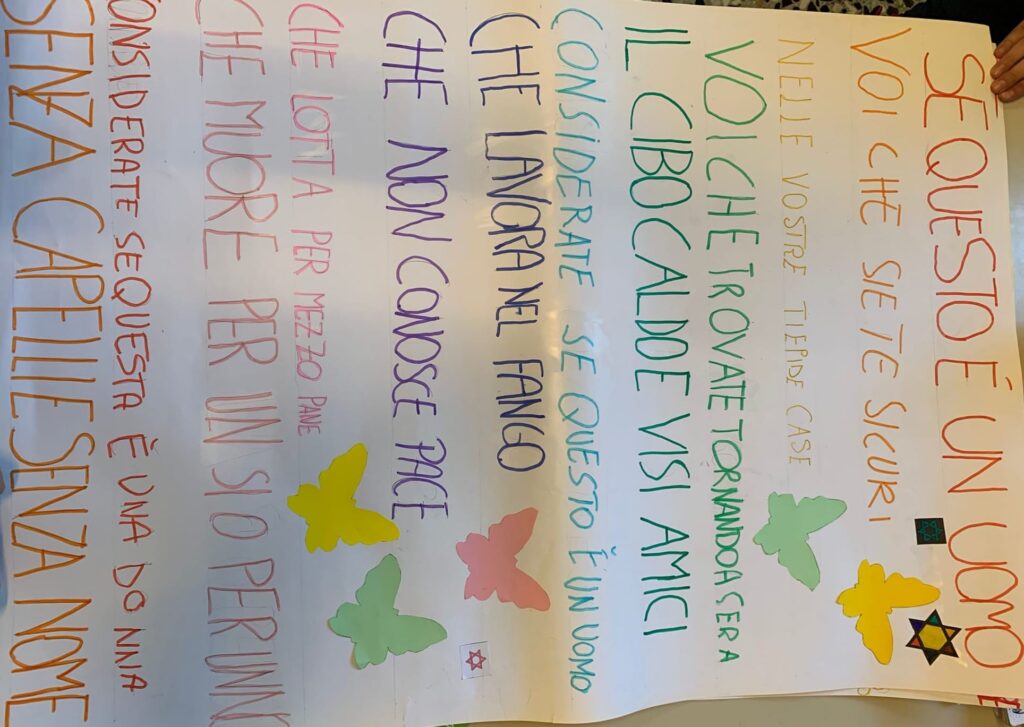 SE QUESTO É UN UOMO
VOI CHE SIETE SICURI
NELLE VOSTRE TIEPIDE CASE
VOI CHE TROVATE TORNANDO A SERA
IL CIBO CALDO E VISI AMICI
CONSIDERATE SE QUESTO È UN UOMO
CHE LAVORA NEL FANGO
CHE NON CONOSCE PACE
CHE LOTTA PER MEZZO PANE
CHE MUORE PER UN SI O PER UN
CONSIDERATE SE QUESTA È UNA DONNA
SENZA CAPELLI E SENZA NOME